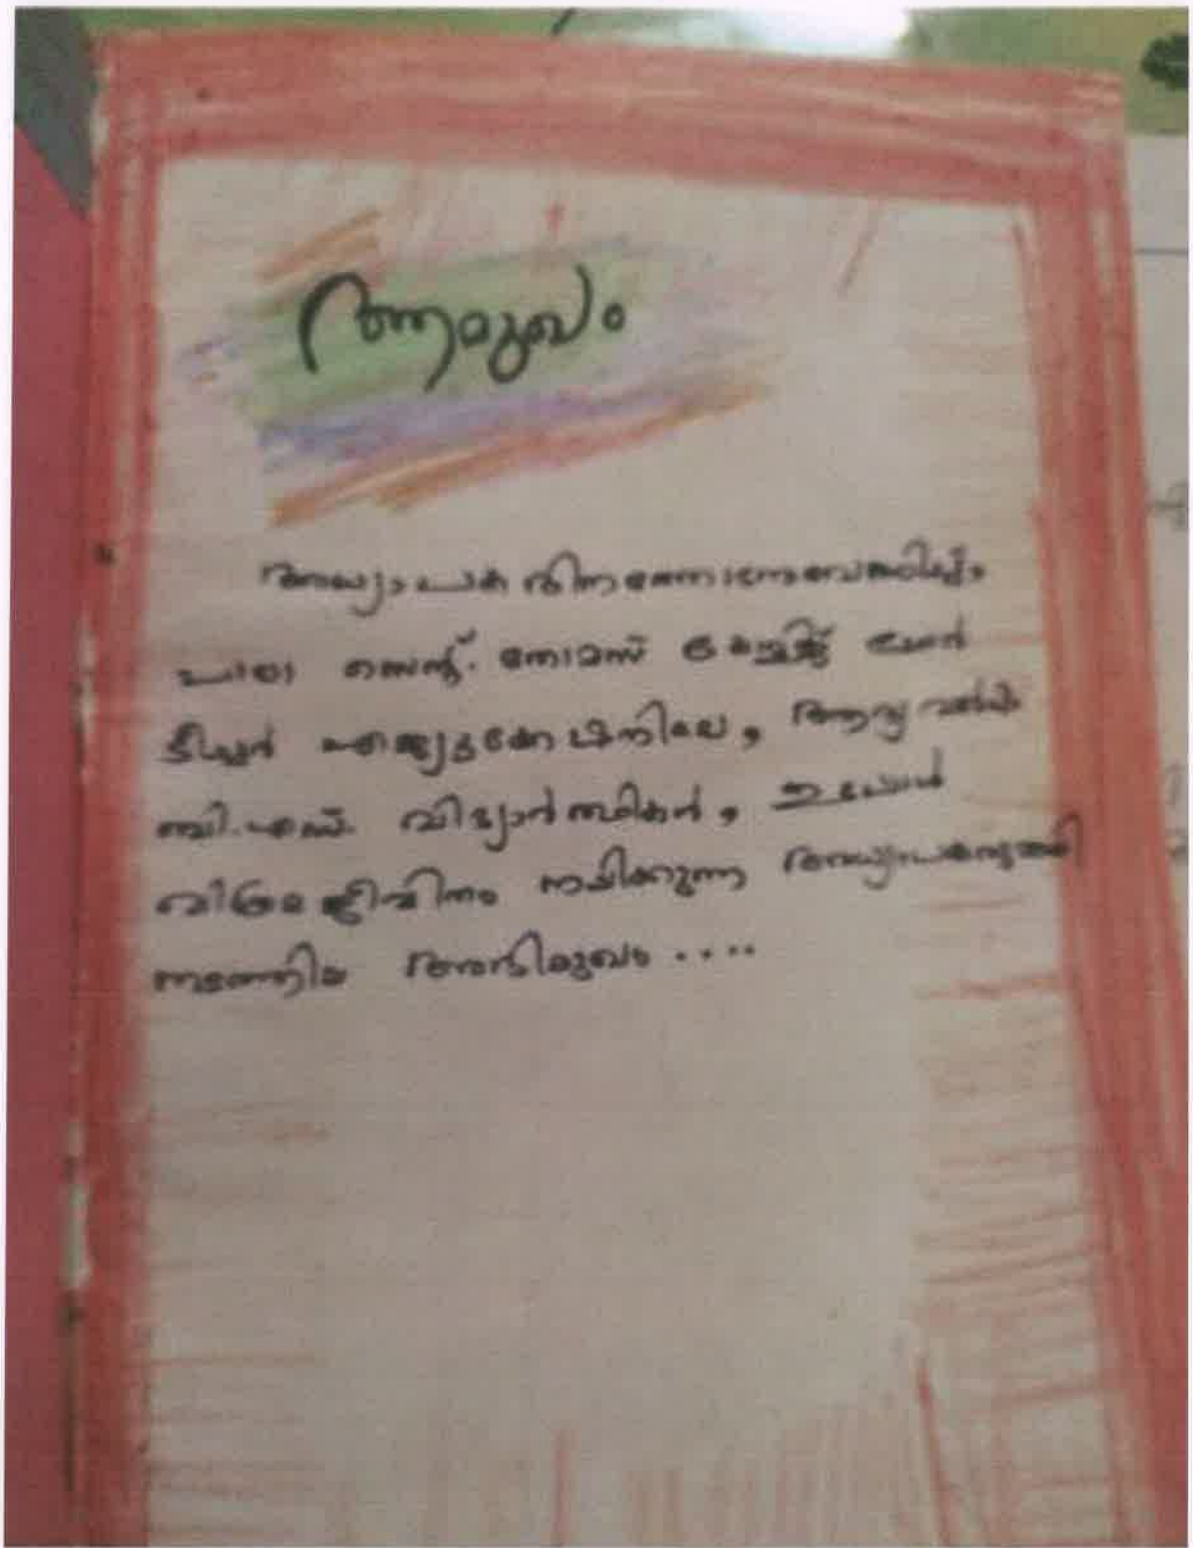 ആമുഖം
അധ്യാപക ദിനത്തോടനുബന്ധിച്ചു
പാലാ സെന്റ്. തോമസ് കോളജ് ഓഫ്
ടീച്ചർ എജ്യുക്കേഷനിലെ, ആദ്യ വർഷ
ബി.എഡ്. വിദ്യാർത്ഥികൾ, ഇപ്പോൾ
വിശ്രമജീവിതം നയിക്കുന്ന അധ്യാപകരുമായി
നടത്തിയ അഭിമുഖം ....